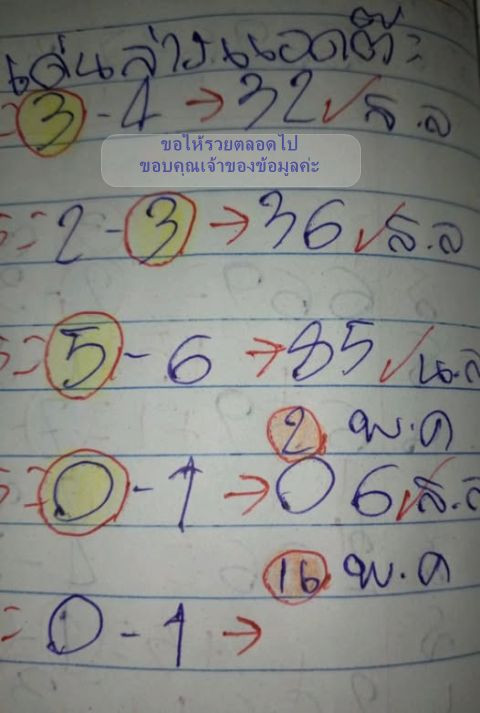 เด่นล่างนอดต๊ะ
= 3 - 4 → 32 ✓ ส.ล
ขอให้รวยตลอดไป
ขอบคุณเจ้าของข้อมูลค่ะ
== 2 - 3 → 36 ✓ ส.ล
== 5 - 6 → 85 ✓ น.ล
2 พ.ค
== 0 - 1 → 06 ✓ ส.ล
16 พ.ค
= 0 - 1 →